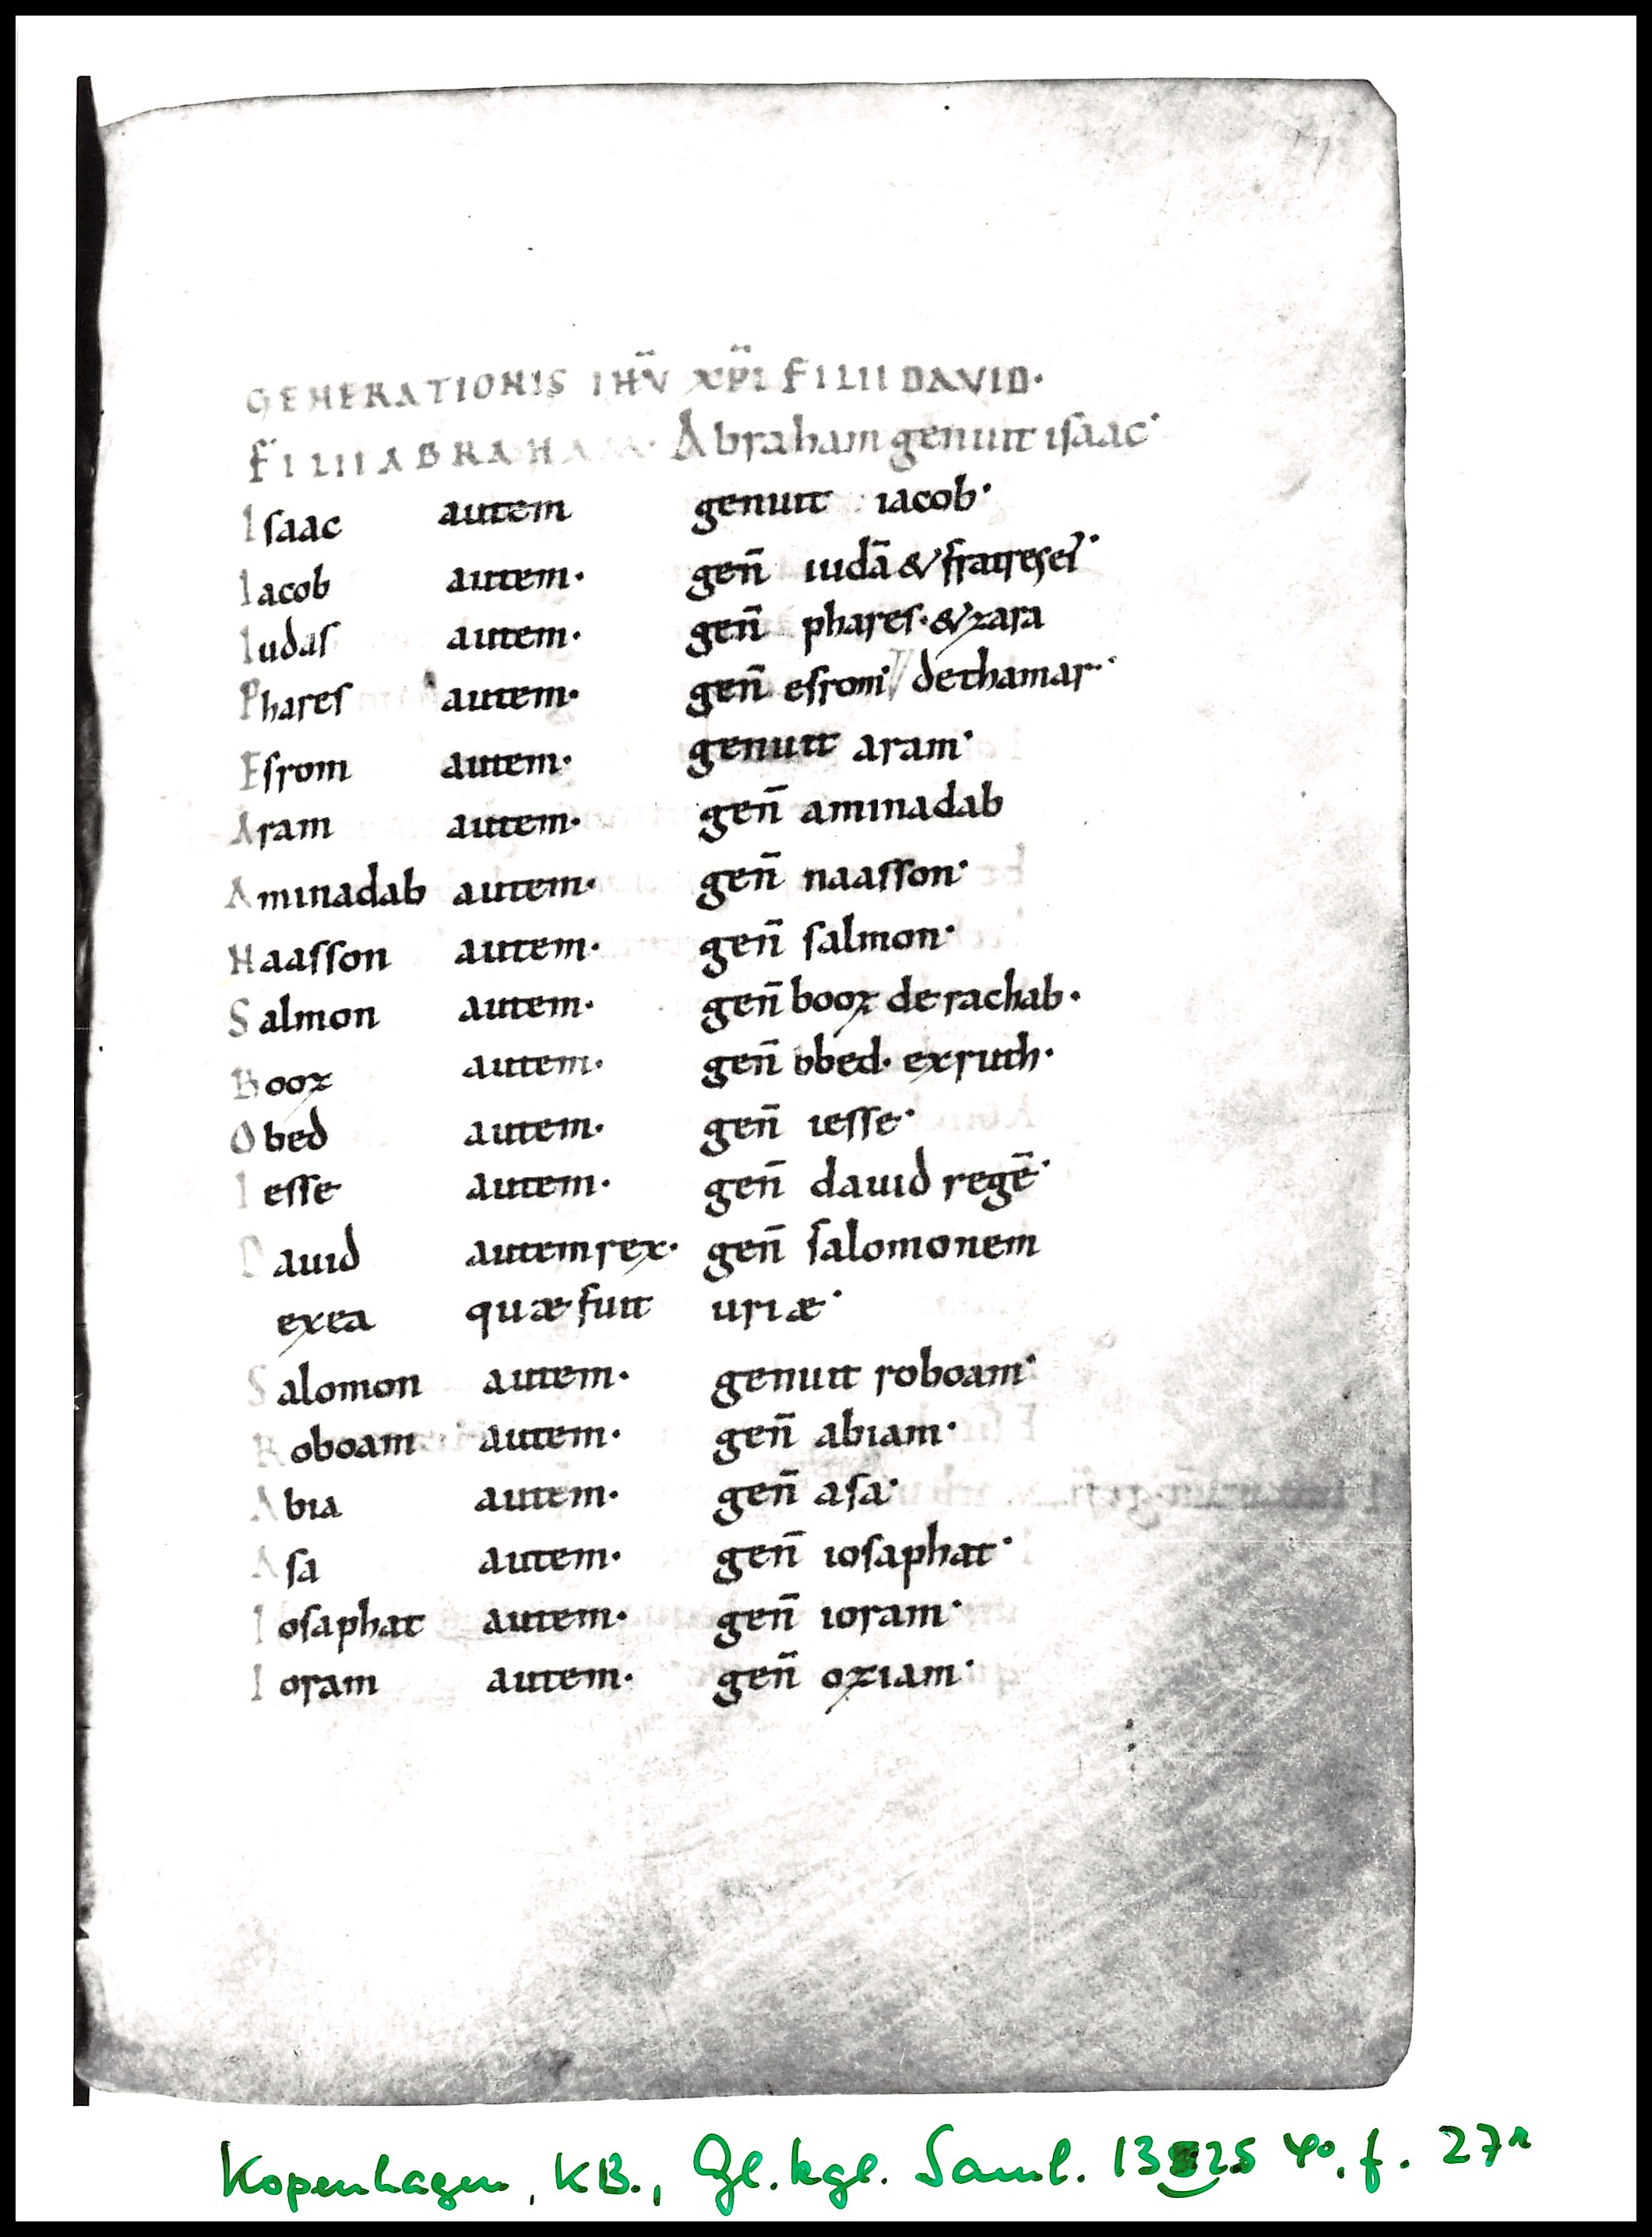 GENERATIONIS IHV̄ XP̄I FILII DAVID·
FILII ABRAHAM· Abraham genuit isaac·
Isaac autem genuit iacob·
Iacob autem· gen̄ iudā & fratres ei᾿·
Iudas autem· gen̄ phares· & zara
Phares autem· gen̄ esrom· // de thamar·
Esrom autem· genuit aram·
Aram autem· gen̄ aminadab
Aminadab autem· gen̄ naasson·
Naasson autem· gen̄ salmon·
Salmon autem· gen̄ booz de rachab·
Booz autem· gen̄ obed· ex ruth·
Obed autem· gen̄ iesse·
Iesse autem· gen̄ dauid regē·
Dauid autem rex· gen̄ salomonem
ex ea quæ fuit uriæ·
Salomon autem· genuit roboam·
Roboam autem· gen̄ abiam·
Abia autem· gen̄ asa·
Asa autem· gen̄ iosaphat·
Iosaphat autem· gen̄ ioram·
Ioram autem· gen̄ oziam·
Kopenhagen, KB., Gl. kgl. Saml. 1325 4º, f. 27r